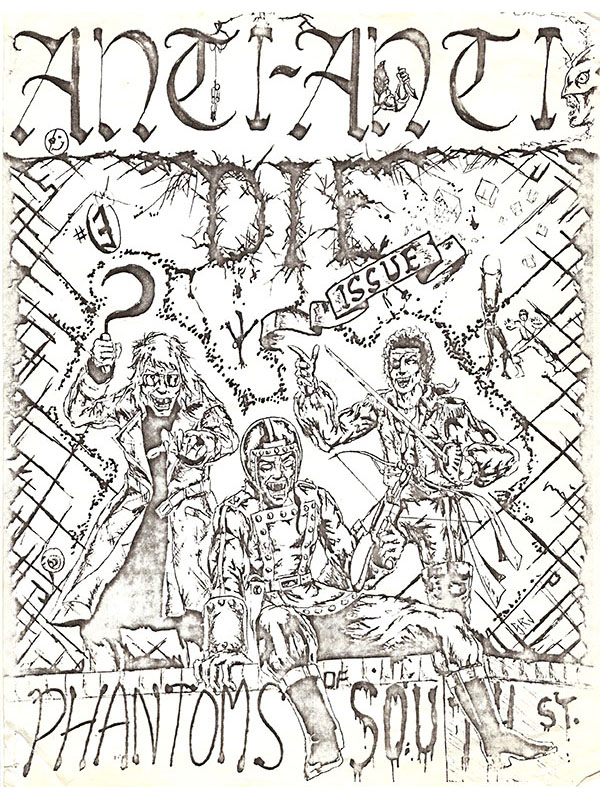 ANTI-ANTI
DIE
#1
ISSUE
PHANTOMS OF SOUTH ST.